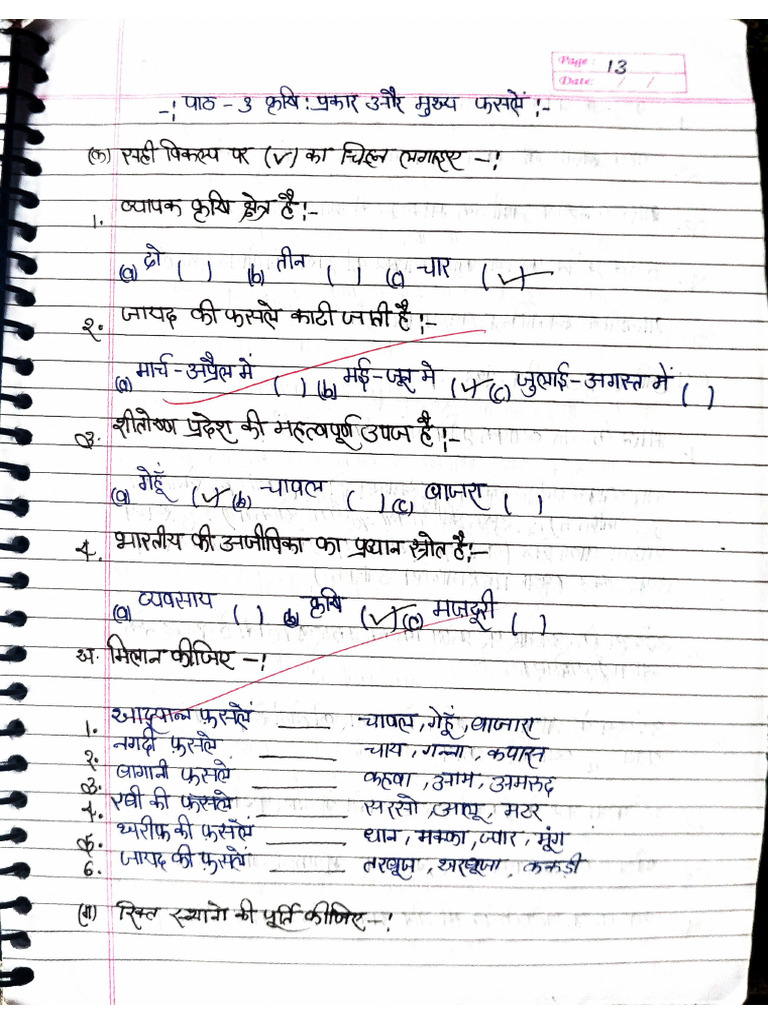 Page: 13
Date: / /
-! पाठ - 3 कृषि : प्रकार और मुख्य फसलें !-
(क) सही विकल्प पर (✓) का चिह्न लगाइए -!
1. व्यापक कृषि क्षेत्र है !-
(a) दो ( ) (b) तीन ( ) (c) चार (✓)
२. जायद की फसले काटी जाती है !-
(a) मार्च-अप्रैल में ( ) (b) मई-जून मे (✓) (c) जुलाई-अगस्त में ( )
3. शीतोष्ण प्रदेश की महत्वपूर्ण उपज है !-
(a) गेहूँ (✓) (b) चावल ( ) (c) बाजरा ( )
4. भारतीय की अजीविका का प्रधान स्त्रोत है !-
(a) व्यवसाय ( ) (b) कृषि (✓) (c) मजदूरी ( )
अ. मिलान कीजिए -!
1. खाद्यान्न फ़सलें ____ चावल, गेहूँ, बाजारा
२. नगदी फ़सले ____ चाय, गन्ना, कपास
3. बागानी फसलें ____ कहवा, आम, अमरुद
4. रबी की फसलें ____ सरसो, आलू, मटर
5. खरीफ की फ़सलें ____ धान, मक्का, ज्वार, मूंग
6. जायद की फ़सलें ____ तरबूज, खरबूजा, ककड़ी
(ग) रिक्त स्थानो की पूर्ति कीजिए -!